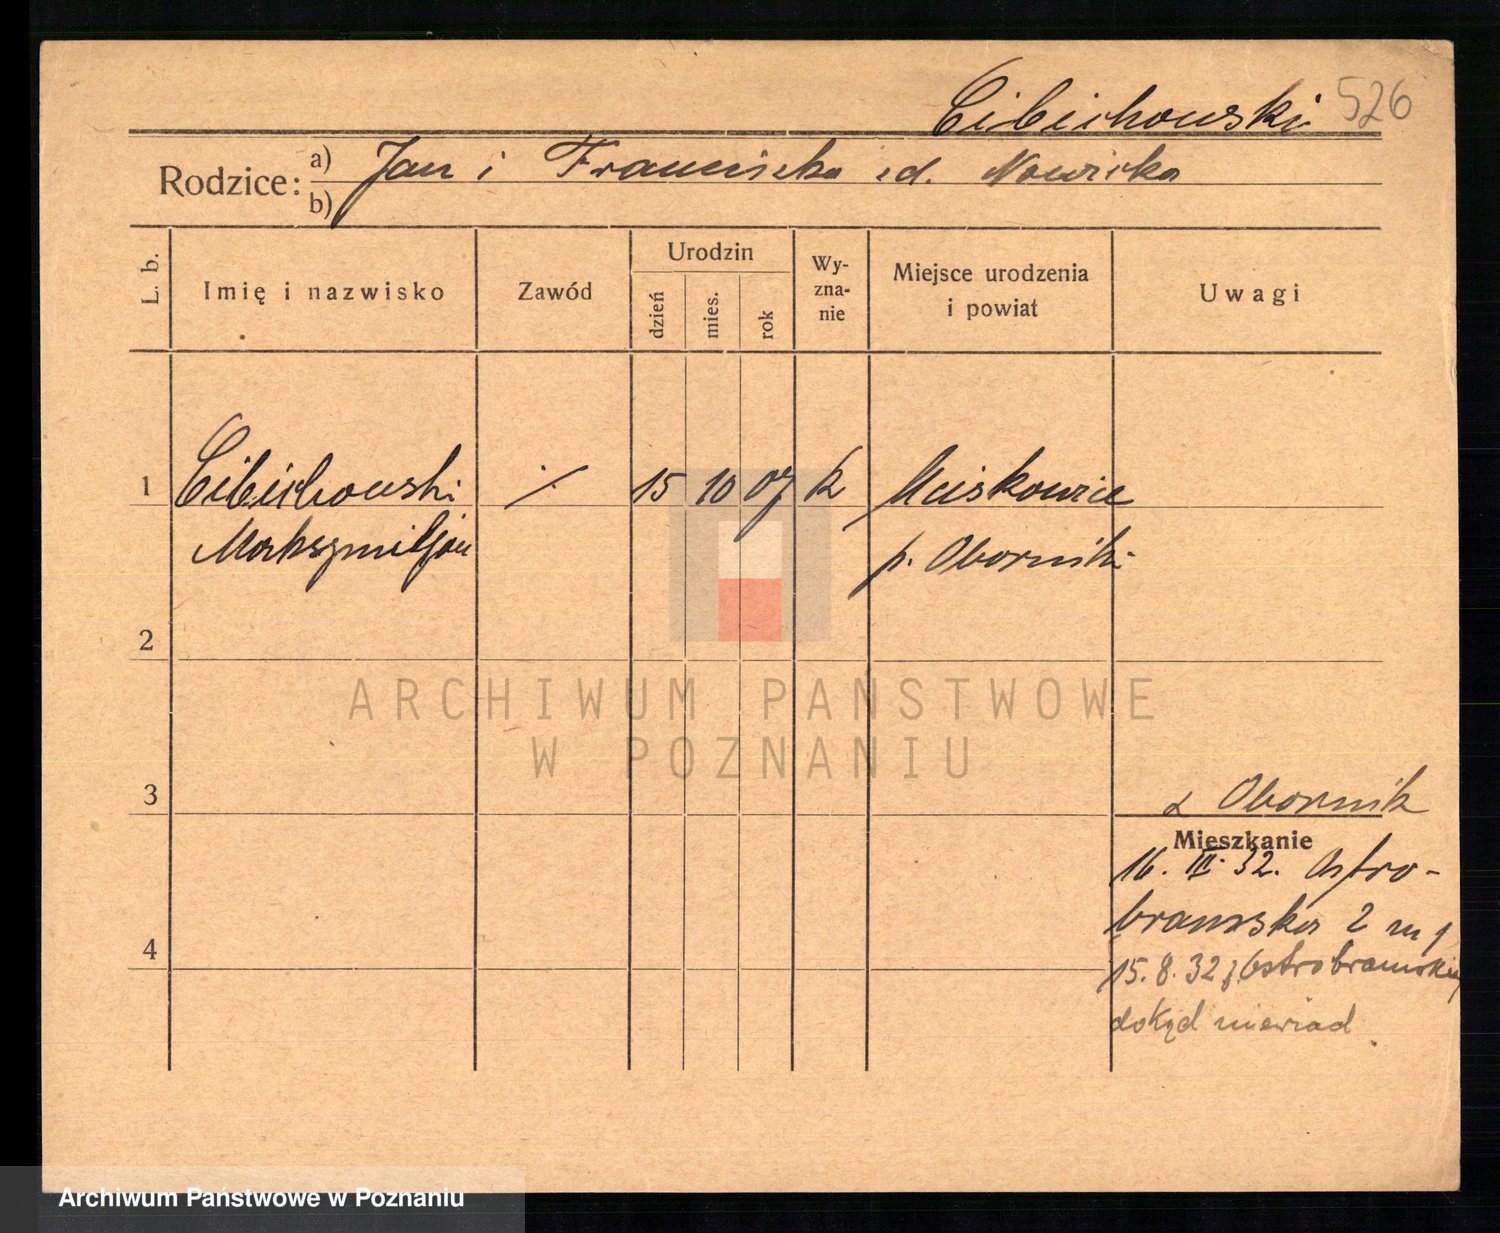 Cibichowski 526
Rodzice: a) Jan i Franciszka zd. Nowicka
b)
L. b.
Imię i nazwisko
Zawód
Urodzin
dzień
mies.
rok
Wy-
zna-
nie
Miejsce urodzenia
i powiat
Uwagi
1 Cibichowski ./. 15 10 07 k
Maksymiljan p. Oborniki
2
ARCHIWUM PAŃSTWOWE
W POZNANIU
3
z Obornik
Mieszkanie
16. III. 32. Ostro-
bramska 2 m 1
15. 8. 32 z Ostrobramskiej
dokąd niewiad.
4
Archiwum Państwowe w Poznaniu